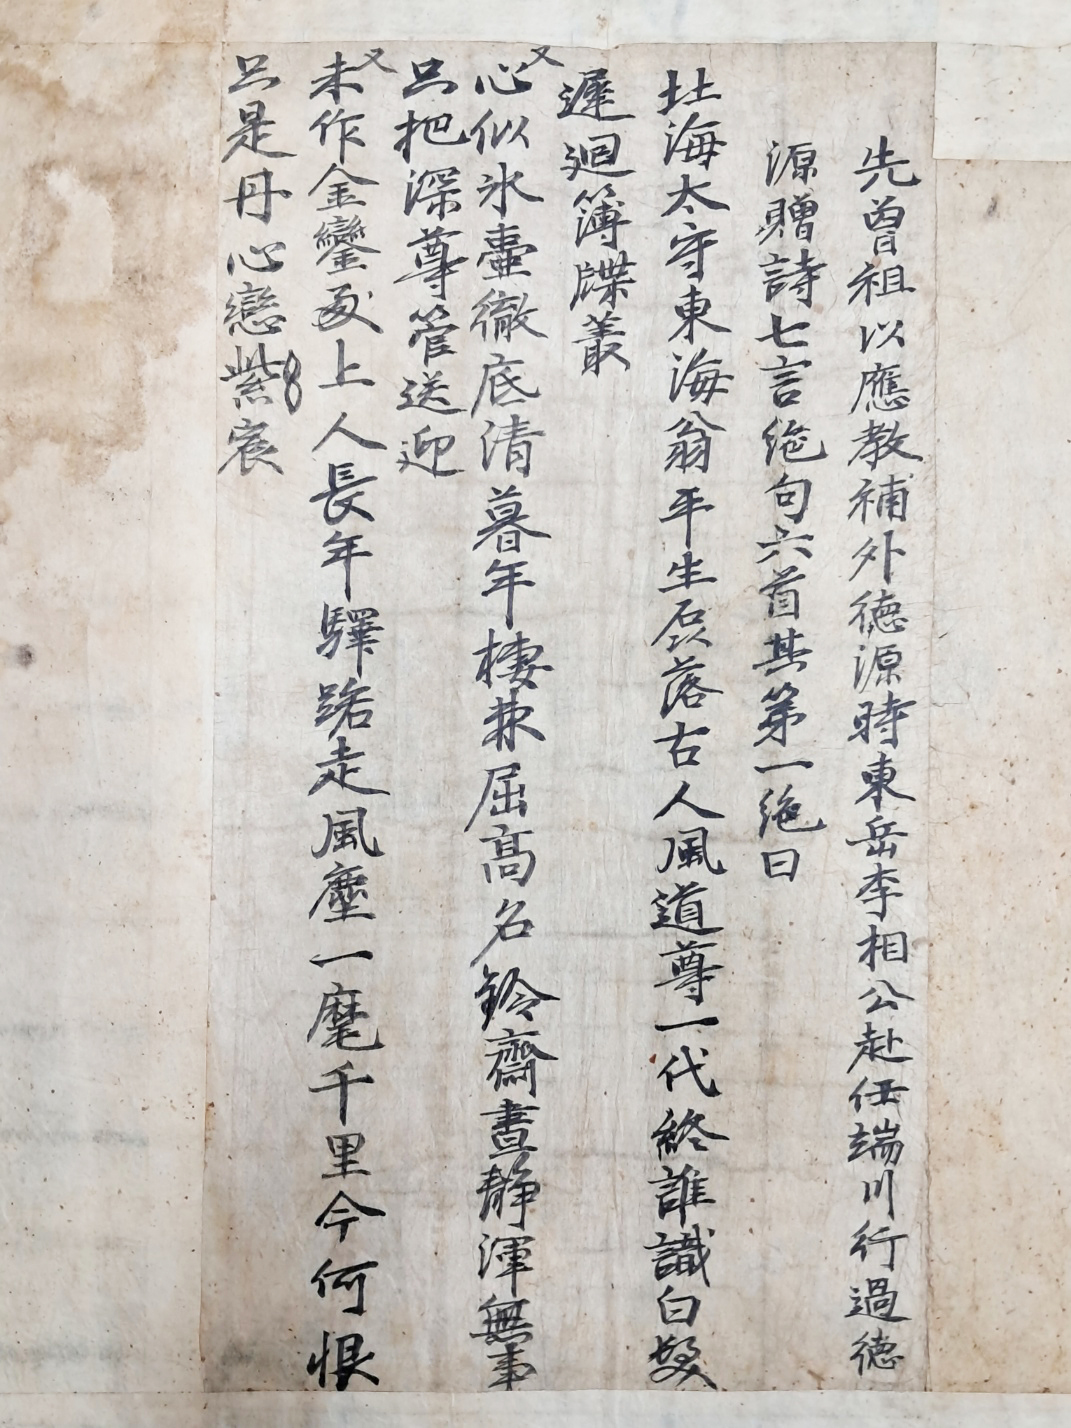 先曾祖以應教補外德源時東岳李相公赴任端川行過德
源贈詩七言絶句六首其第一絶曰
北海太守東海翁平生磊落古人風道尊一代終誰識白髮
遲迴簿牒叢
又
心似氷壷徹底清暮年棲棘屈高名鈴齋晝静渾無事
只把深尊管送迎
又
未作金鑾上人長年驛路走風塵一麾千里今何恨
只是丹心戀紫宸